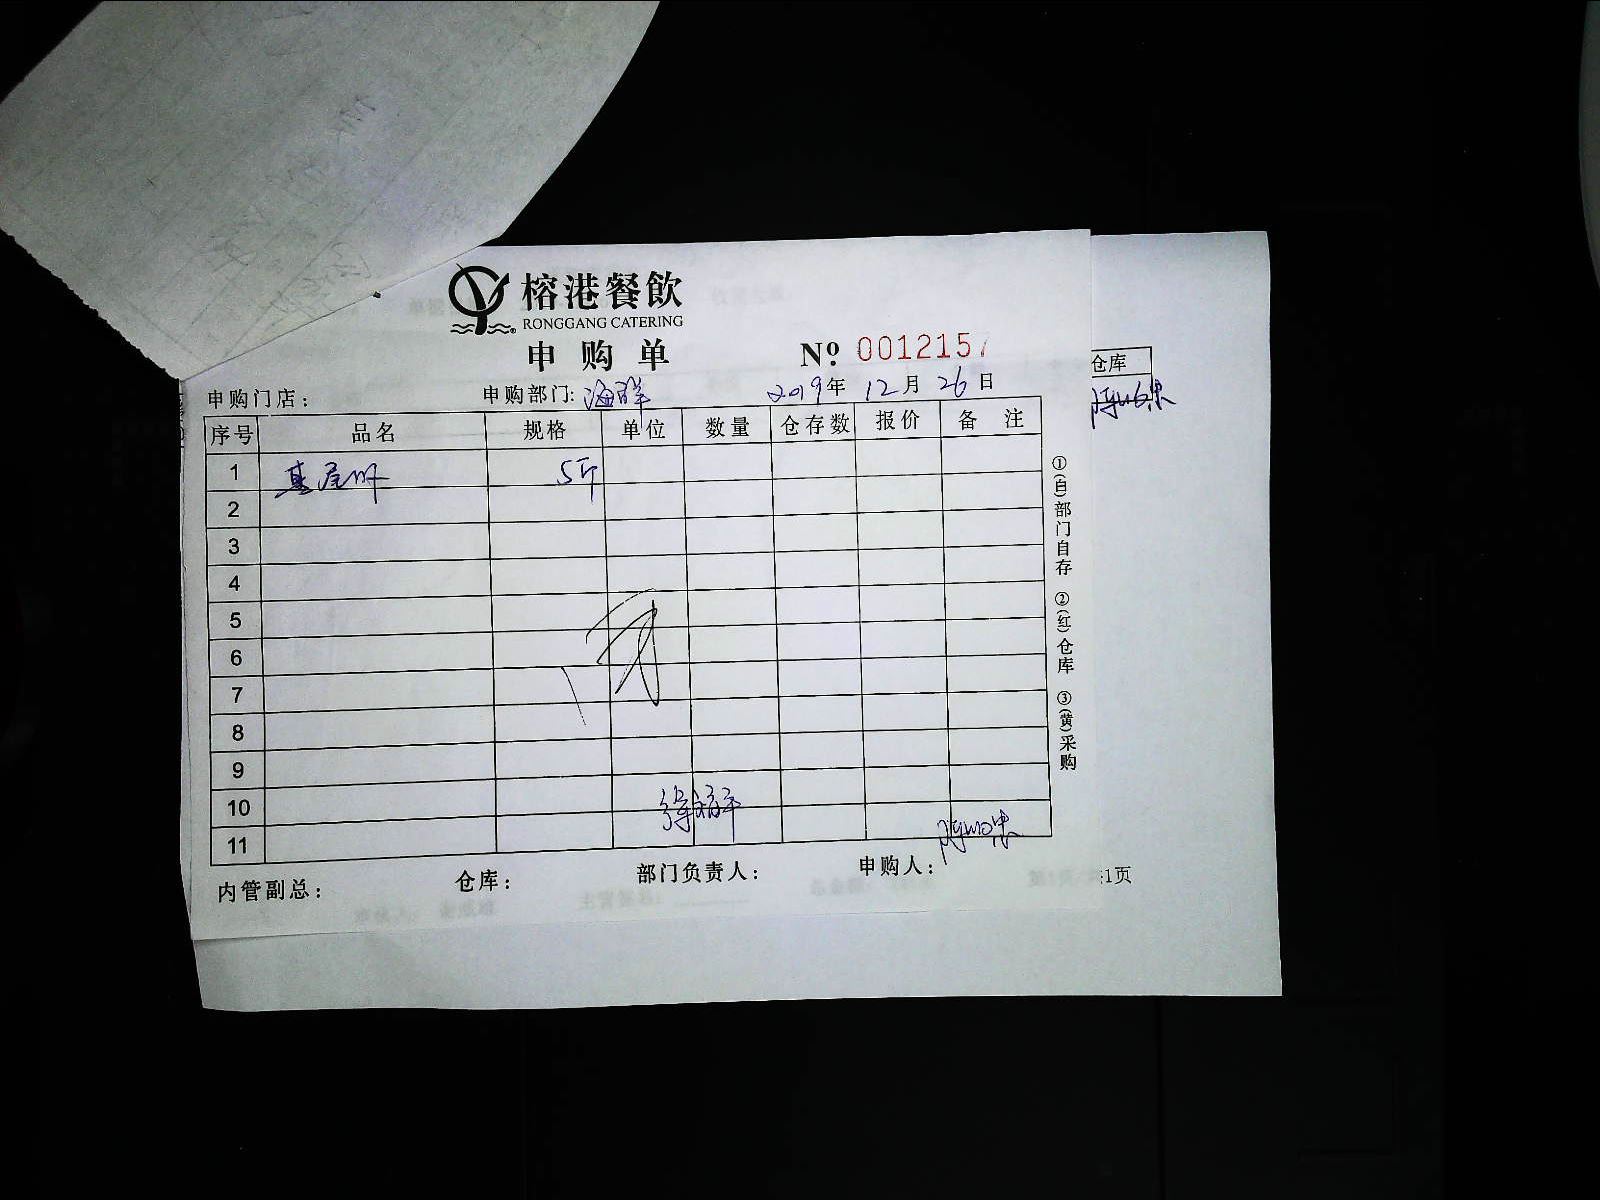 榕港餐飲
RONGGANG CATERING
申购单
№ 0012157
仓库
申购门店： 申购部门: 海鲜 2019年 12月 26日
序号 品名 规格 单位 数量 仓存数 报价 备 注
1 基尾虾 5斤
2
3
4
5
6
7
8
9
10
11
内管副总： 仓库： 部门负责人： 申购人：
:1页
①(白)部门自存 ②(红)仓库 ③(黄)采购